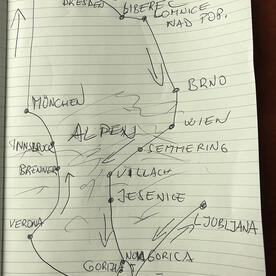 DRESDEN
LIBEREC
LOMNICE
NAD POP.
BRNO
MÜNCHEN
WIEN
ALPEN
INNSBRUCK
SEMMERING
BRENNER
VILLACH
JESENICE
LJUBLJANA
VERONA
NOVA GORICA
GORIZIA